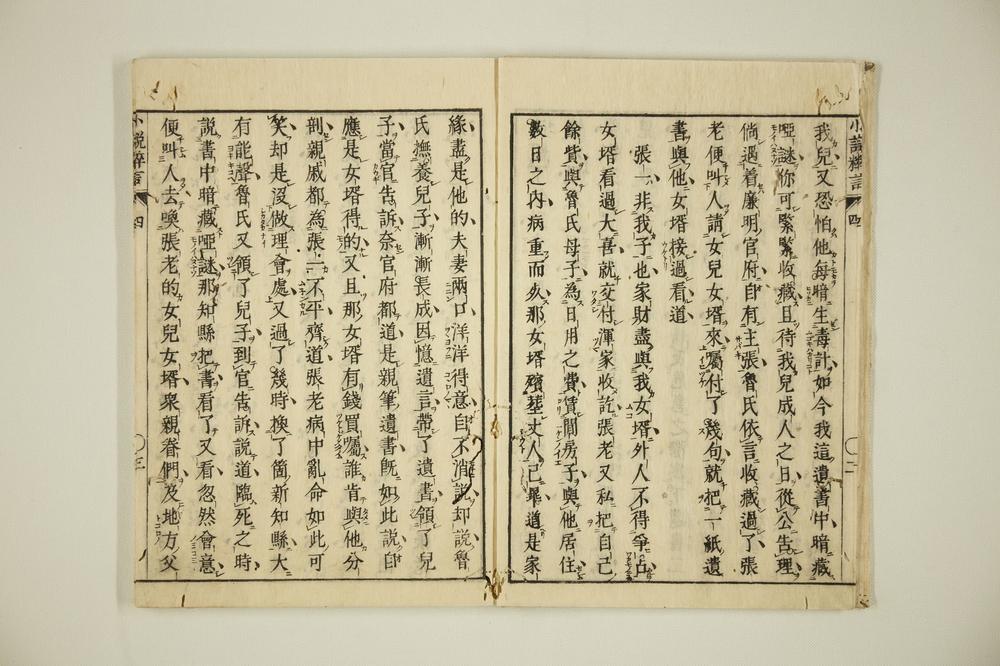 小說粹言 四 〇二
我兒又恐怕他每暗生毒計如今我這遺書中暗藏
啞謎你可緊緊收藏且待我兒成人之日從公告理
倘遇着廉明官府自有主張魯氏依言收藏過了張
老便叫人請女兒女壻來囑付了幾句就把一紙遺
書與他女壻接過看道
張一非我子也家財盡與我女壻外人不得爭占
女壻看過大喜就交付渾家收訖張老又私把自己
餘貲與魯氏母子為日用之費賃間房子與他居住
數日之內病重而死那女壻殯塟丈人已畢道是家
緣盡是他的夫妻兩口洋洋得意自不消說却說魯
氏撫養兒子漸漸長成因憶遺言帶了遺書領了兒
子當官告訴奈官府都道是親筆遺書旣如此說自
應是女壻得的又且那女壻有錢買囑誰肯與他分
剖親戚都為張一不平齊道張老病中亂命如此可
笑却是沒做理會處又過了幾時換了箇新知縣大
有能聲魯氏又領了兒子到官告訴說道臨死之時
說書中暗藏啞謎那知縣把書看了又看忽然會意
便叫人去喚張老的女兒女壻衆親眷們及地方父
小說粹言 四 〇三